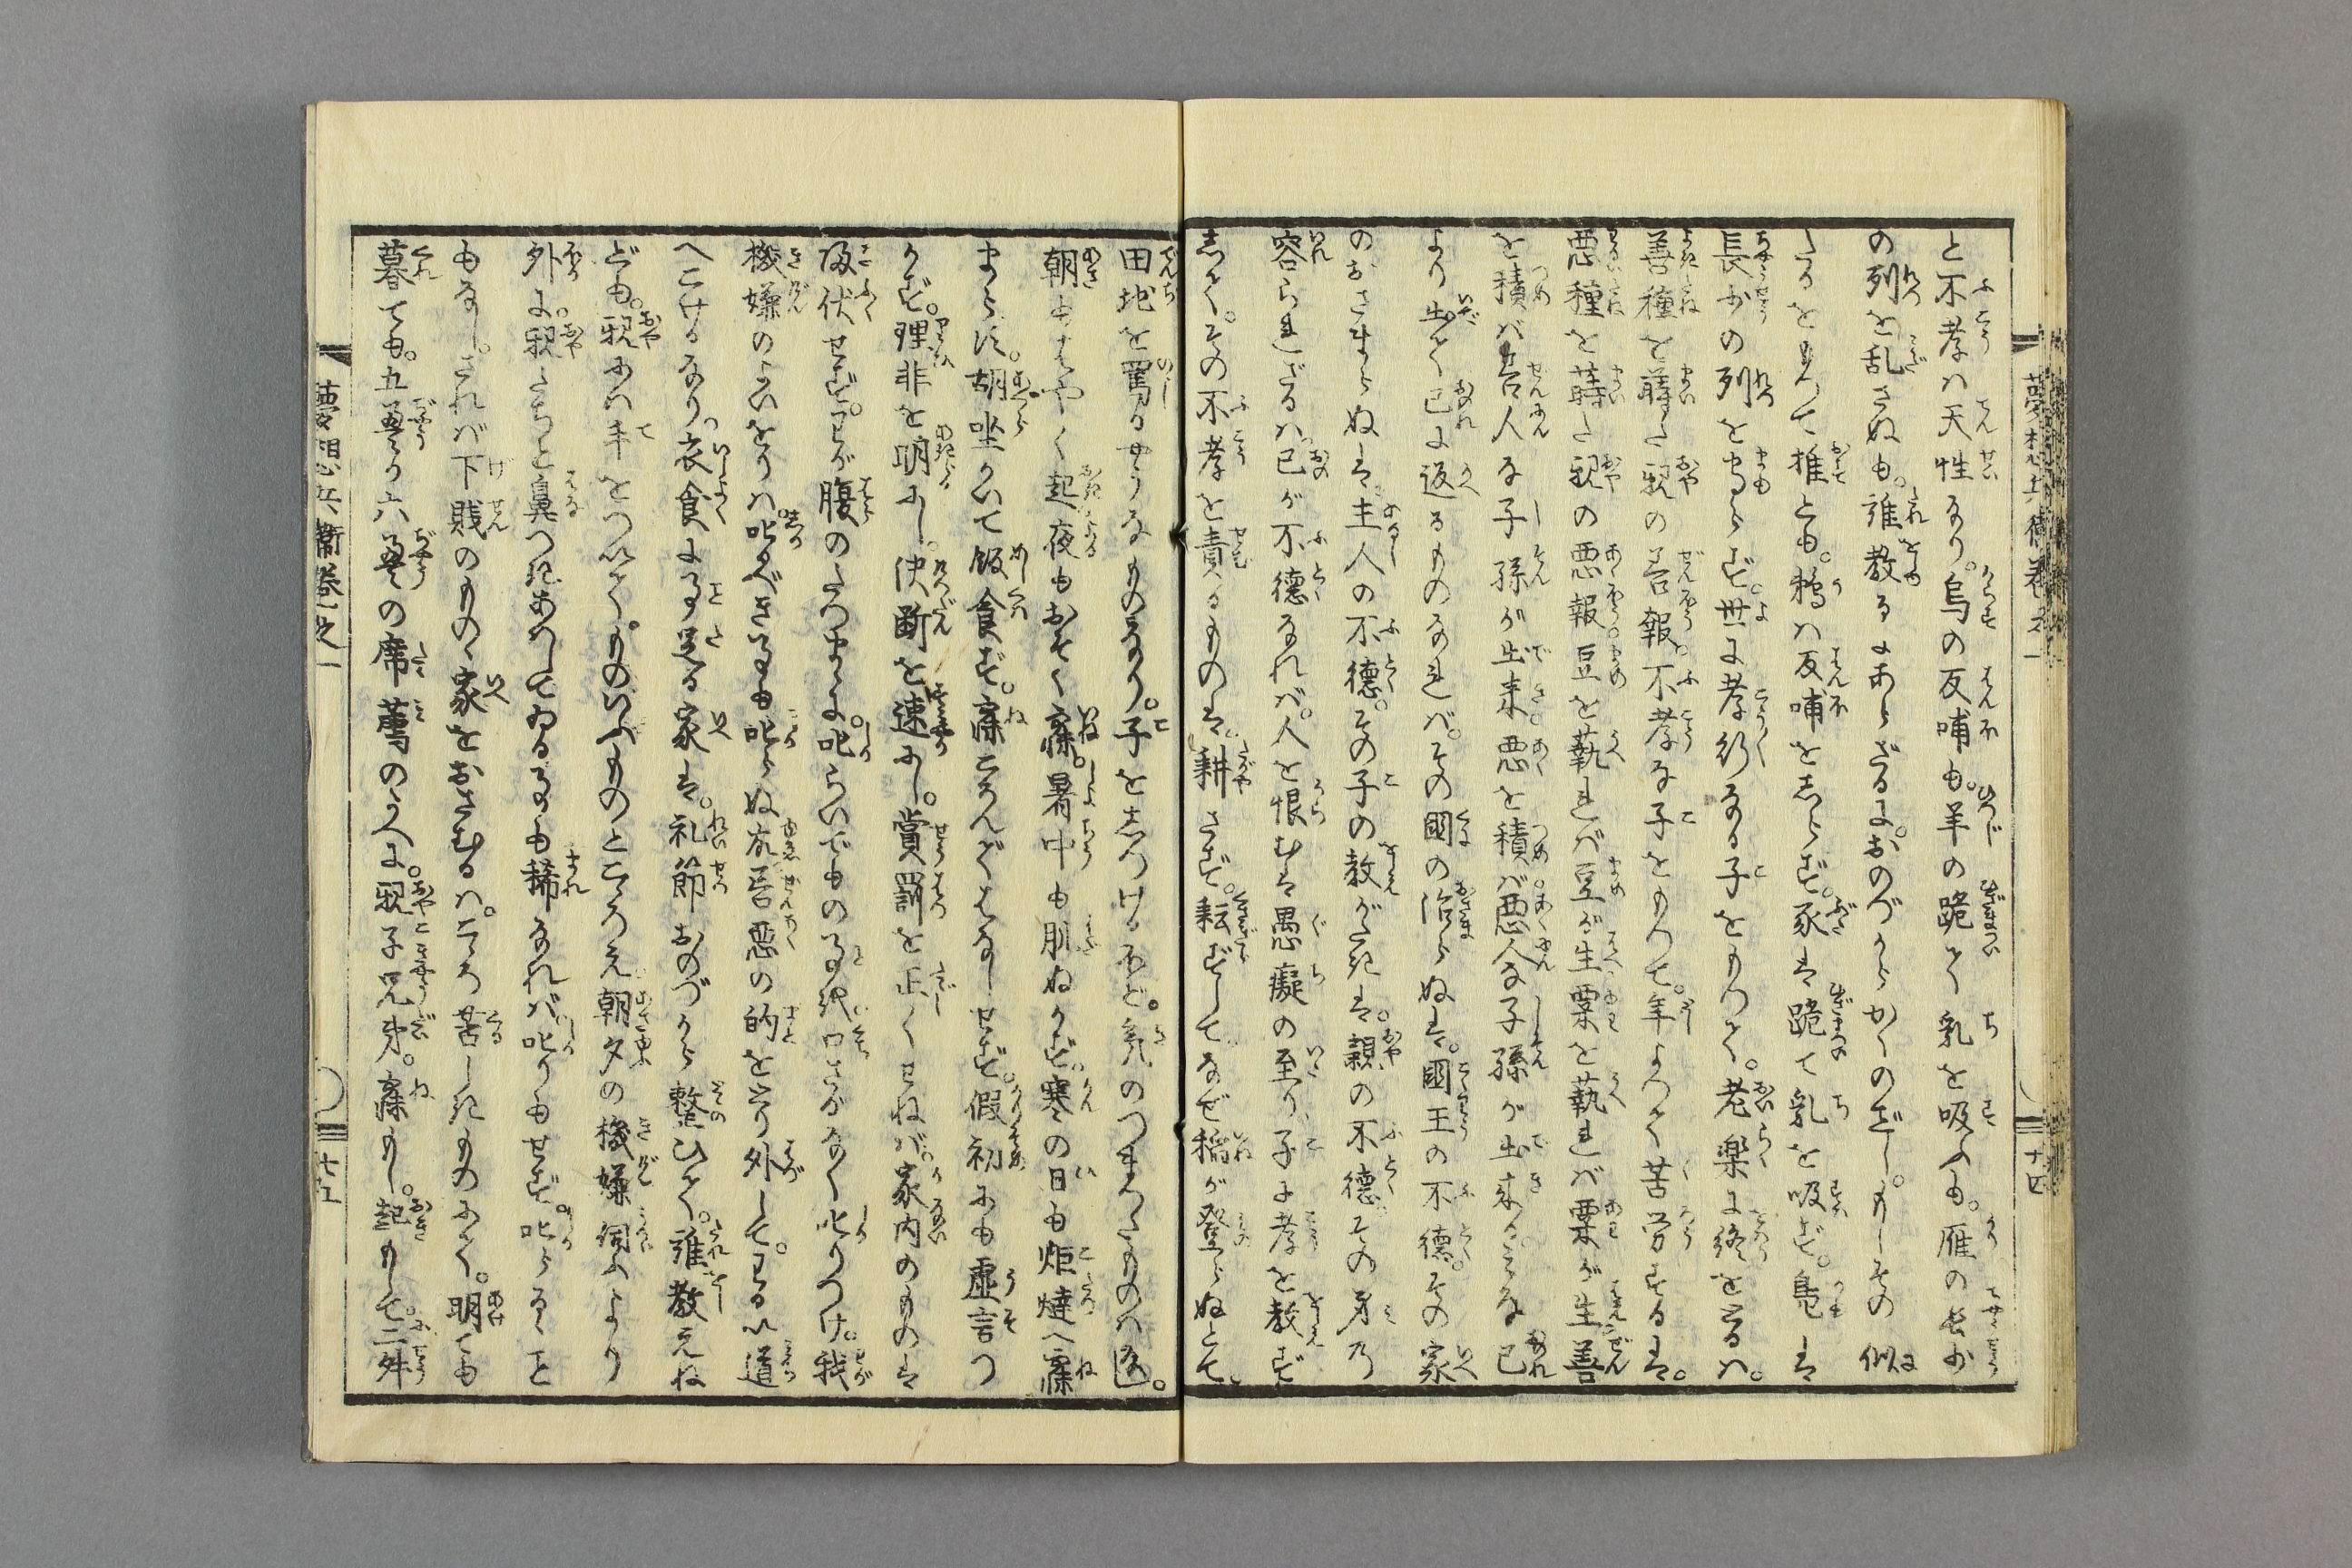 夢想兵衛巻之一
十四
と不孝は天性なり。烏の反哺も。羊の跪て乳を吸ふも。雁の長少
の列を乱さぬも。誰教るにあらざるに。おのづからかくのごとし。もしその似
たるをもつて推とも。鵜は反哺をしらず。豕は跪て乳を吸ず。鳧は
長少の列をまもらず。世に孝行なる子をもつて。老楽に終をとるは。
善種を蒔た親の善報。不孝な子をもつて。年よつて苦労するは。
悪種を蒔た親の悪報。豆を蓺れば豆が生。粟を蓺れば粟が生。善
を積ば善人な子孫が出来。悪を積ば悪人な子孫が出来る。みな己
より出て己に返るものなれば。その国の治らぬは。国王の不徳。その家
のおさまらぬは。主人の不徳。その子の教がたきは。親の不徳。その身乃
容られざるは。己が不徳なれば。人を恨むは愚癡の至り。子に孝を教ず
して。その不孝を責るものは。耕さず。耘ずして。なぜ稲が登らぬとて。
田地を罵るやうなものなり。子をしつけるほど。気のつまつたものは。
朝もはやく起夜もおそく寐。暑中も肌ぬがず。寒の日も炬燵へ寐
まらず。胡坐かいて飯食ず。寐ころんではなしせず。假初にも虚言つ
かず。理非を明にし。決断を速にし。賞罰を正しくせねば。家内のものは
帰伏せず。わが腹のたつまゝに。叱らいでもの事まで口さがなく叱りつけ。我
機嫌のよいをりは。叱るべき事も叱らぬ故。善悪の的をとり外して。わるい道
へこけるなり。衣食に事足る家は。礼節おのづから整ひて。誰教えね
ども。親には手をついて。ものいふものとこゝろえ。朝夕の機嫌伺ふより
外に。親たちと鼻つきあはしてゐる事も稀なれば。叱りもせず。叱らるゝこと
もなし。されば下賎のものゝ家をおさむるは。こゝろ苦しきものにて。明ても
暮ても。五畳か六畳の席薦のうへに。親子兄弟。寐もし。起もして。二舛
夢想兵衛巻之一
十五